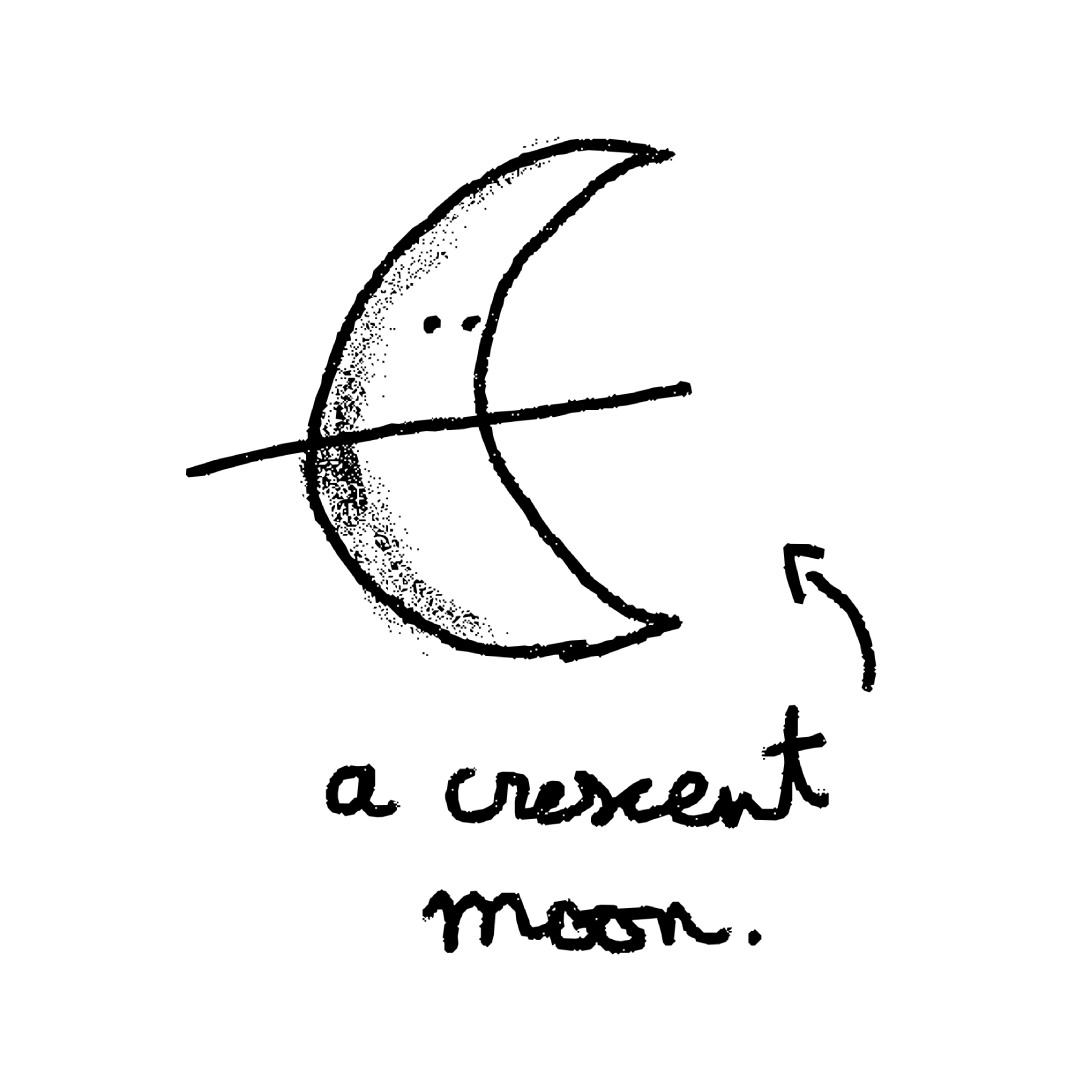 a crescent
moon.